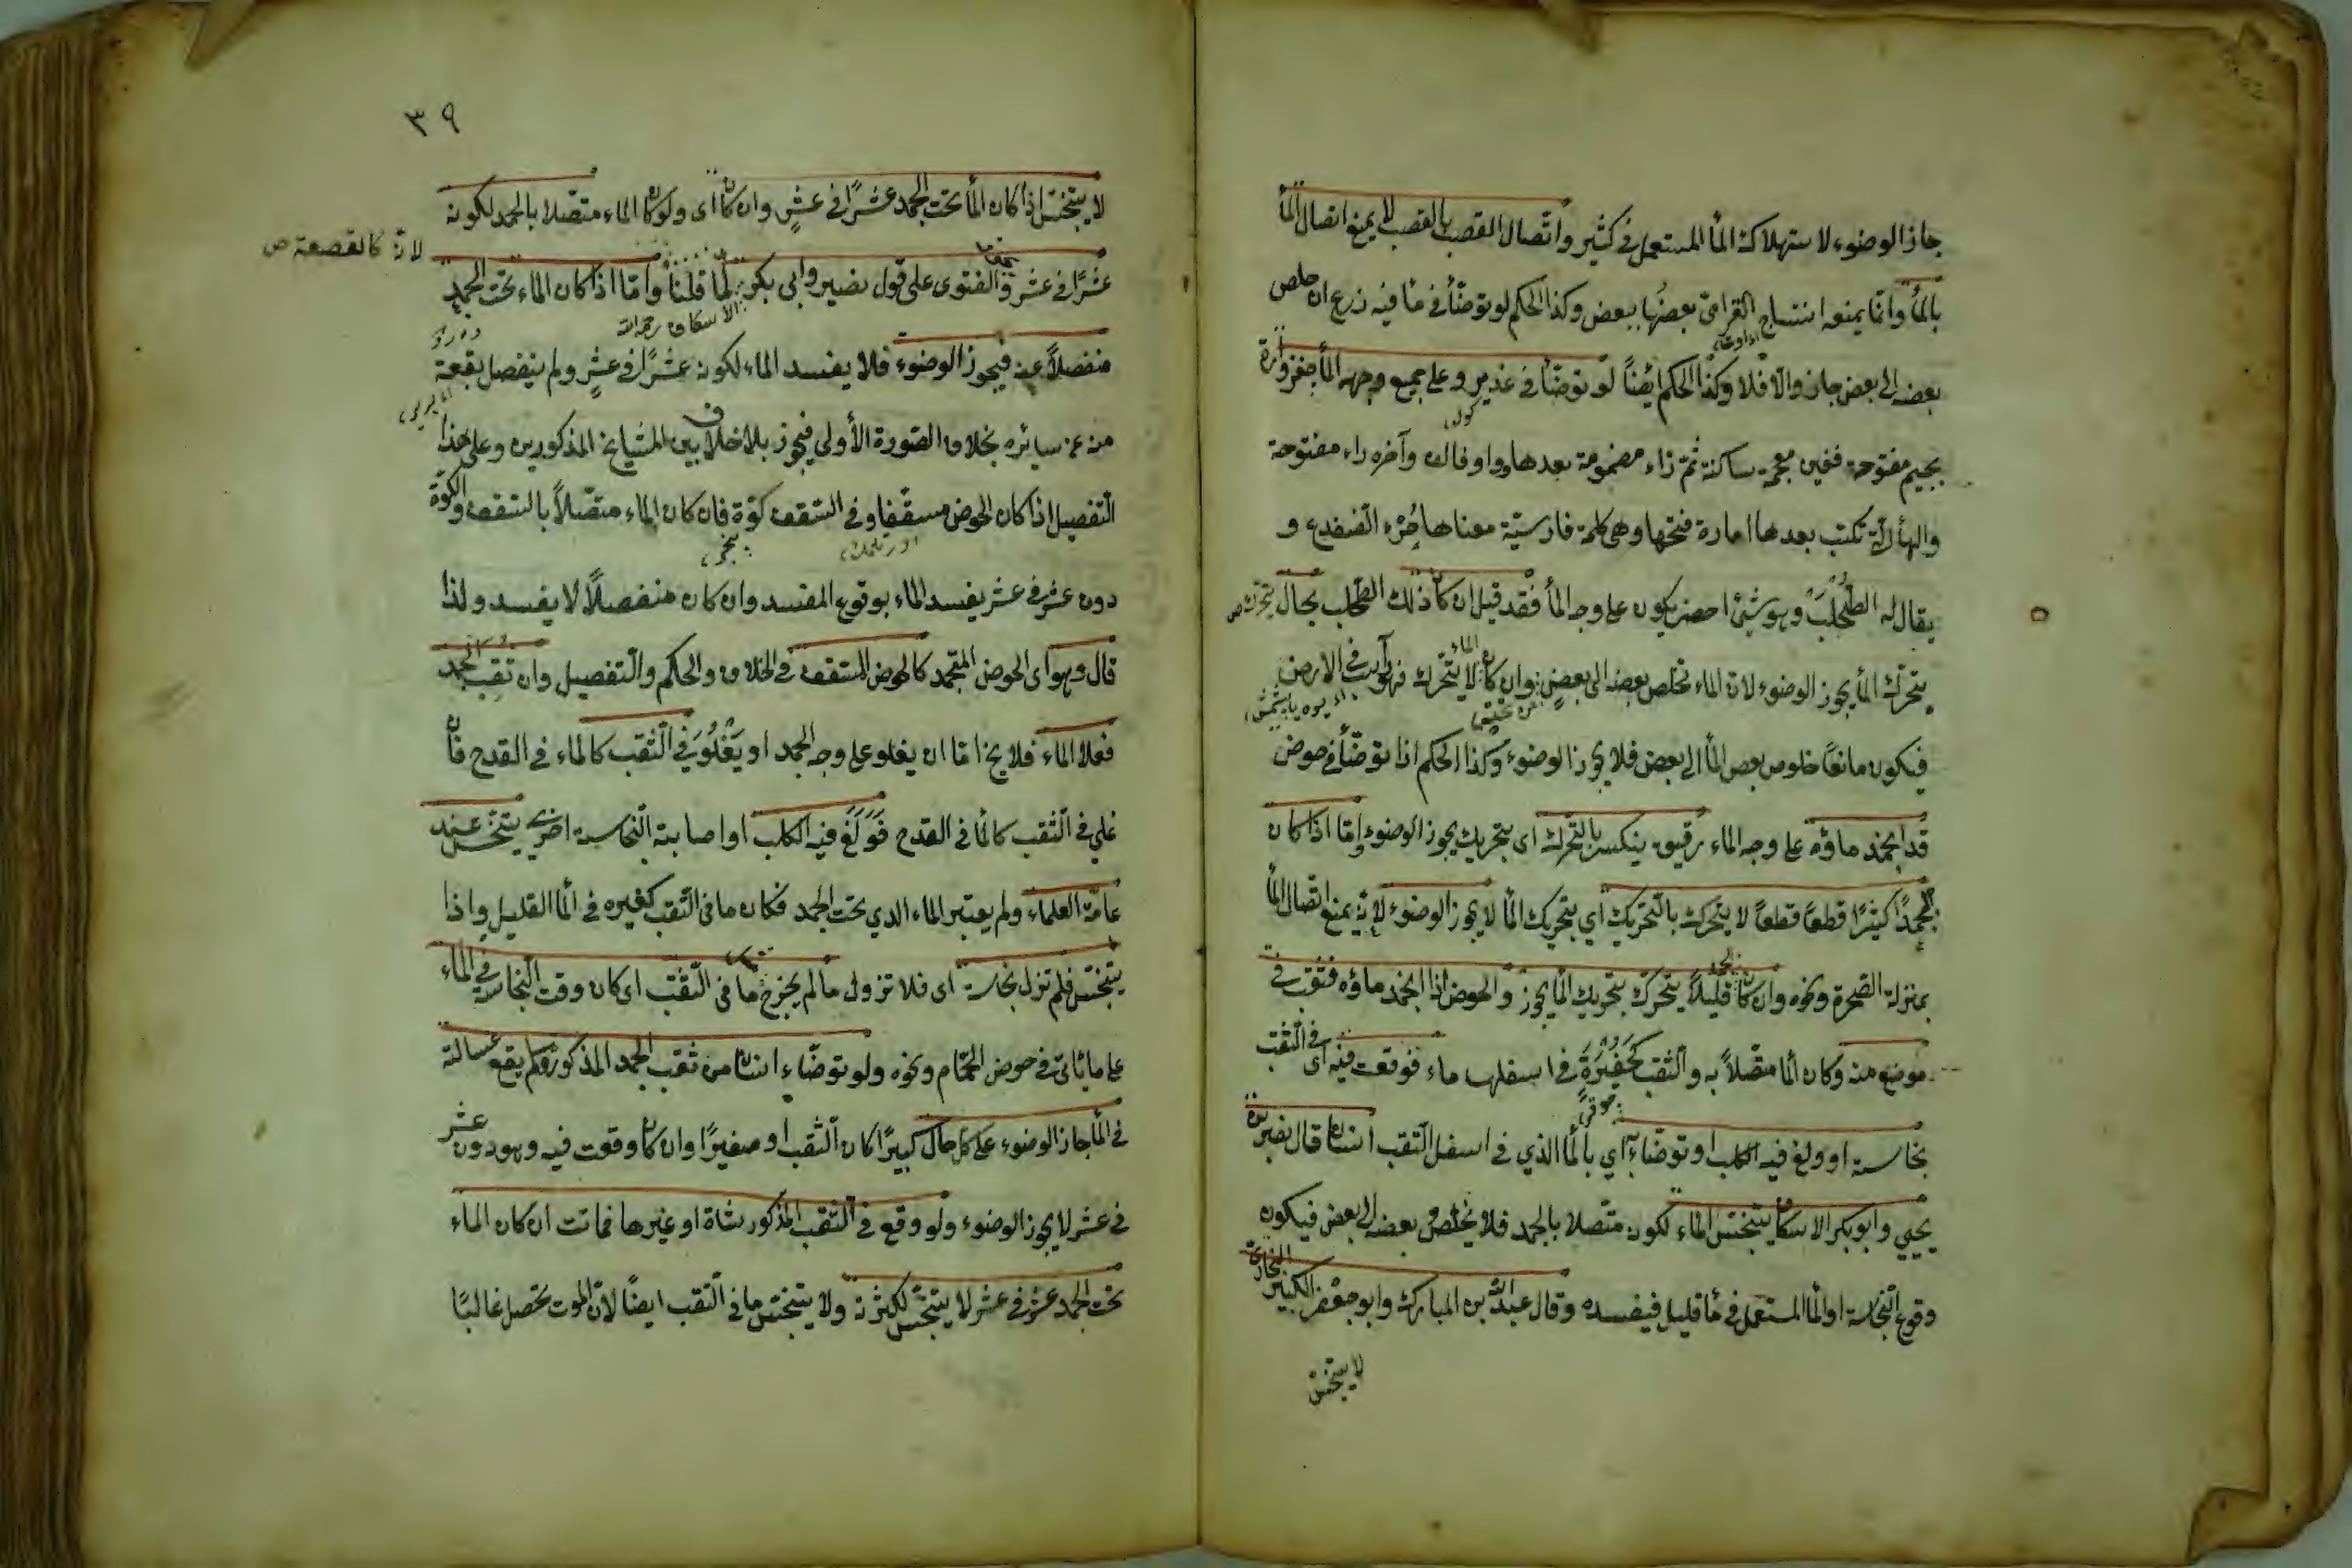 جاز الوضوء لاستهلاكه الماء المستعمل في كثير واتصال القصب بالقصب لا يمنع اتصال الماء
بالماء وانما يمنعه انتساج بعضها ببعض وكذا الحكم لو توضأ في ما فيه زرع ان خلص
بعضه الى بعض جاز والا فلا وكذا الحكم ايضا لو توضأ في غدير وعلى جميع وجه الماء جغزواره
بجيم مفتوحة فغين معجمة ساكنة ثم زاء مضمومة بعدها واو فالف وآخره راء مفتوحة
والهاء تكتب بعدها امارة فتحها وهي كلمة فارسية معناها خرء الضفدع و
يقال له الطحلب وهو شيئ اخضر يكون على وجه الماء فقد قيل ان كان ذلك الطحلب بحال يتحرك
بتحرك الماء يجوز الوضوء لان الماء تخلص بعضه الى بعض وان كان لا يتحرك فهو في الارض
فيكون مانعا خلوص بعض الماء الى بعض فلا يجوز الوضوء وكذا الحكم اذا توضأ في حوض
قد انجمد ماؤه على وجه الماء رقيق ينكسر بالتحرك اى بتحريك يجوز الوضوء واما اذا كان
الجمد كثيرا قطعا قطعا لا يتحرك بالتحريك اي بتحريك الماء لا يجوز الوضوء لانه يمنع اتصال الماء
بمنزلة الصخرة ونحوه وان كان الجمد قليلا يتحرك بتحريك الماء يجوز والحوض اذا انجمد ماؤه فثقب في
موضع منه وكان الماء متصلا به والثقب كحفيرة في اسفلها ماء فوقعت فيه اى في الثقب
نجاسة او ولغ فيه الكلب او توضأ به اي بالماء الذي في اسفل الثقب انسان قال نصير بن
يحيى وابو بكر الاسكاف يتنجس الماء لكونه متصلا بالجمد فلا يخلص بعضه الى بعض فيكون
وقوع النجاسة او الماء المستعمل في ماء قليل فيفسده وقال عبد الله بن المبارك وابو جعفر الكبير البخاري
لا يتنجس
٣٩
لا يتنجس اذا كان الماء تحت الجمد عشرا في عشر وان كان اى ولو كان الماء متصلا بالجمد لكونه
عشرا في عشر والفتوى على قول نصير وابي بكر لما قلنا واما اذا كان الماء تحت الجمد
لانه كالقصعة ص
الاسكاف رحمه الله
منفصلا عنه فيجوز الوضوء فلا يفسد الماء لكونه عشرا في عشر ولم ينفصل بقعة
منه عن سائره بخلاف الصورة الأولى فيجوز بلا خلاف بين المشايخ المذكورين وعلى هذا
التفصيل اذا كان الحوض مسقفا وفي السقف كوة فان كان الماء متصلا بالسقف والكوة
دون عشر في عشر يفسد الماء بوقوع المفسد وان كان منفصلا لا يفسد ولذا
قال وهو اى الحوض المنجمد كالحوض المسقف في الخلاف والحكم والتفصيل وان ثقب الجمد
فعلا الماء فلا يخ اما ان يعلو على وجه الجمد او يعلو في الثقب كالماء في القدح فان
على في الثقب كالماء في القدح فولغ فيه الكلب او اصابته النجاسة اخرى يتنجس عند
عامة العلماء ولم يعتبر الماء الذي تحت الجمد فكان ما في الثقب كغيره في الماء القليل واذا
يتنجس فلم تزل نجاسته اى فلا تزول ما لم يخرج ما في الثقب اى كان وقت النجاسة في الماء
على ما يأتى في حوض الحمام ونحوه ولو توضاء انسان من ثقب الجمد المذكور ولم يقع غسالته
في الماء جاز الوضوء على كل حال كبيرا كان الثقب او صغيرا وان كان وقعت فيه وهو دون عشر
في عشر لا يجوز الوضوء ولو وقع في الثقب المذكور شاة او غيرها فماتت ان كان الماء
تحت الجمد عشر في عشر لا يتنجس لكثرته ولا يتنجس ما في الثقب ايضا لان الموت تحصل غالبا